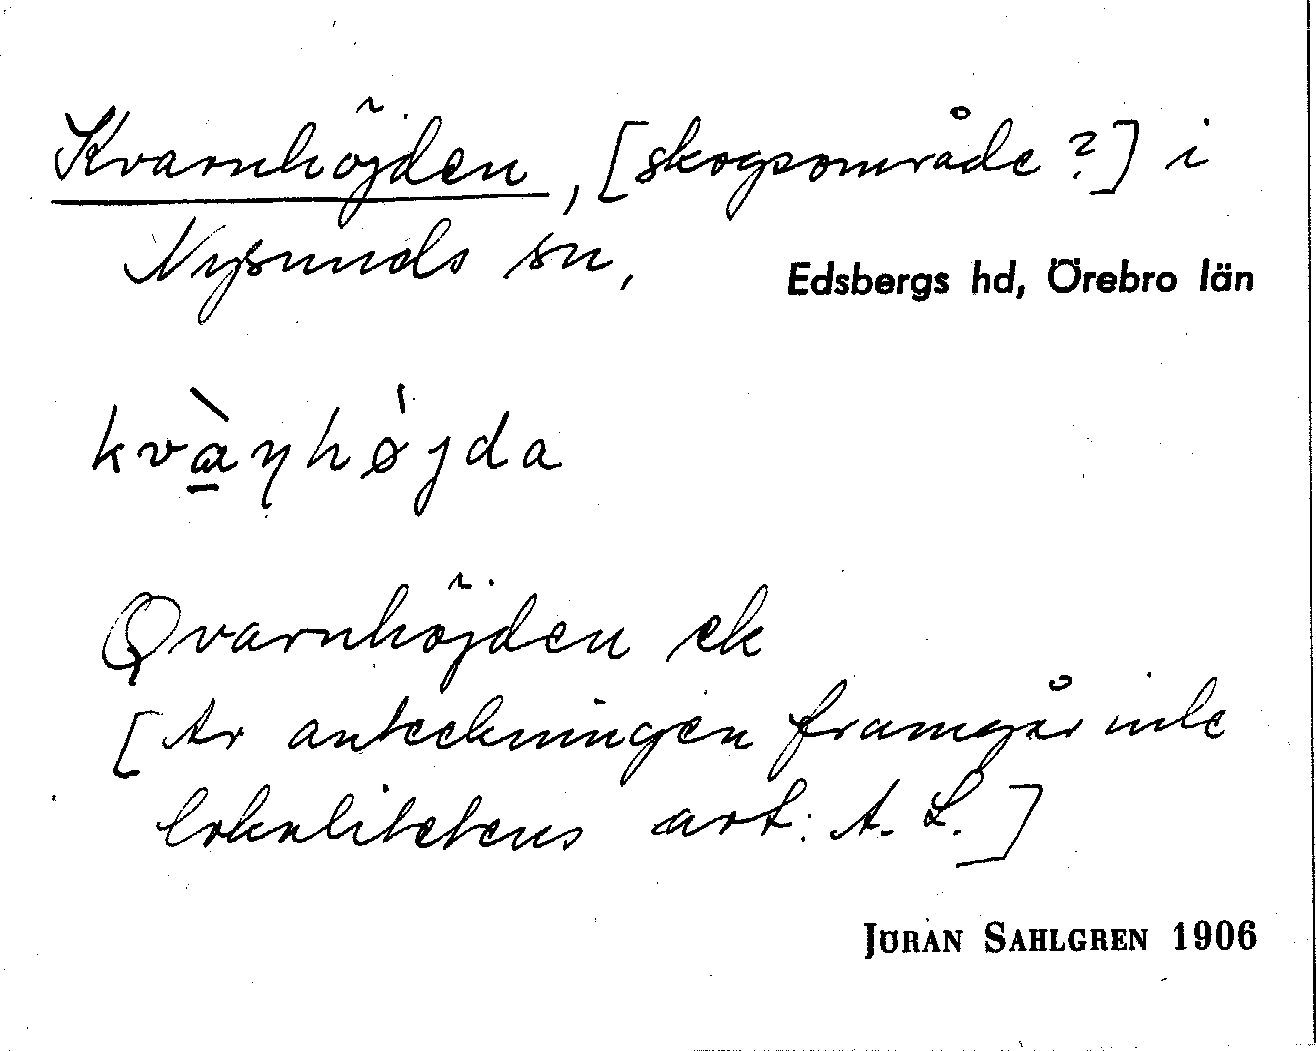 Kvarnhöjden, [skogsområde?] i
Nysunds sn,
Edsbergs hd, Örebro län
kvàṇhø̀jda
Qvarnhöjden ek
[Av anteckningen framgår inte
lokalitetens art. A. L.]
JÖRAN SAHLGREN 1906